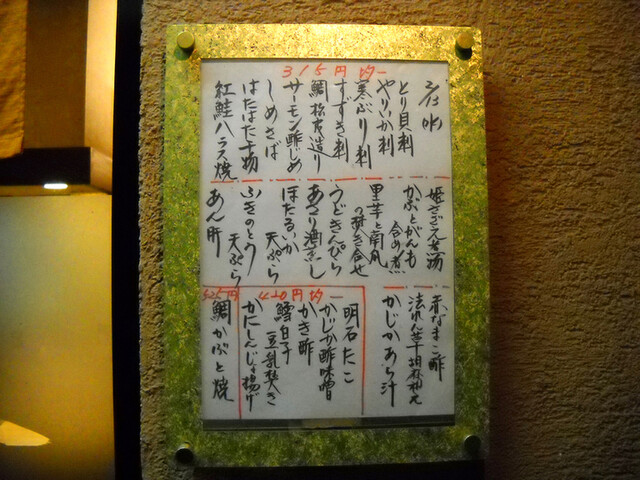 315円均一
2/13(水)
とり貝刺
やりいか刺
寒ぶり刺
すずき刺
鯛松皮造り
サーモン酢じめ
しめさば
はたはた干物
紅鮭ハラス焼
姫さざえ煮
かぶとがんも
含め煮
里芋と南瓜
の炊き合せ
うどきんぴら
あさり酒蒸し
ほたるいか
天ぷら
ふきのとう
天ぷら
あん肝
赤なまこ酢
法れん草胡麻和え
かじかあら汁
420円均一
明石たこ
かじか酢味噌
かき酢
鱈白子
豆乳焚き
かにしんじょ揚げ
525円
鯛かぶと焼